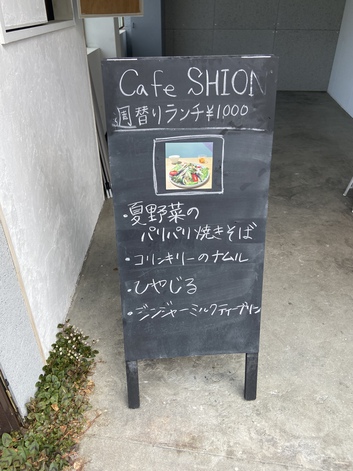 Cafe SHION
週替りランチ¥1000
・夏野菜の
パリパリ焼きそば
・コリンキリーのナムル
・ひやじる
・ジンジャーミルクティープリン